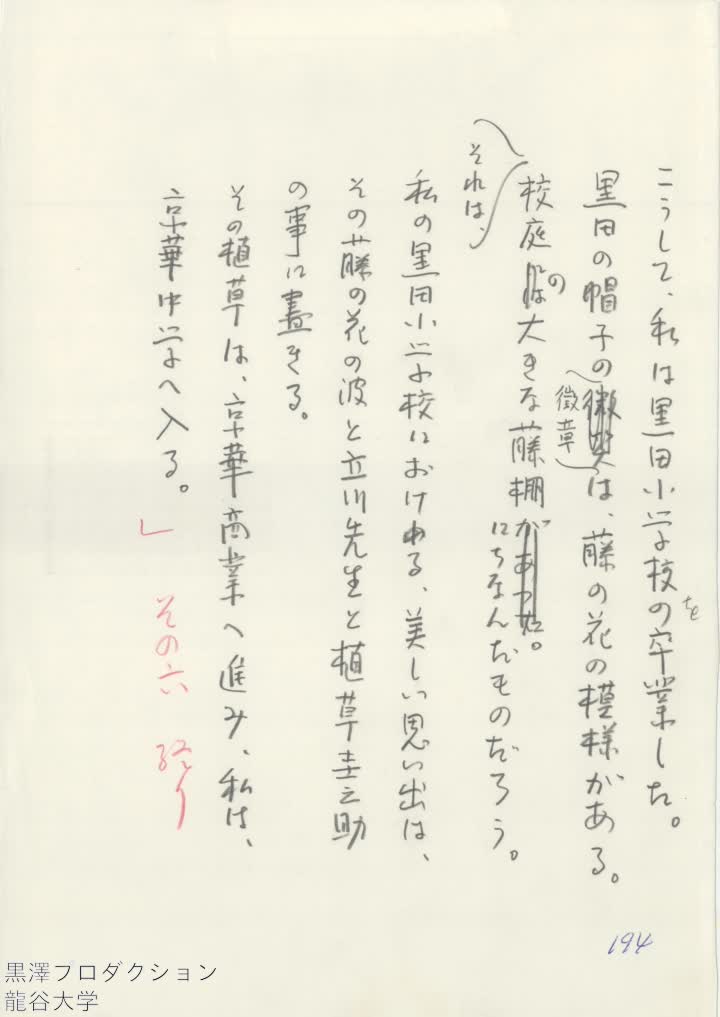 こうして、私は黒田小学校のを卒業した。
黒田の帽子の徽章は、藤の花の模様がある。
それは、
校庭の大きな藤棚があった。
にちなんだものだろう。
私の黒田小学校における、美しい思い出は、
その藤の花の波と立川先生と植草圭之助
の事に盡きる。
その植草は、京華商業へ進み、私は、
京華中学へ入る。」
その六 終り
194
黒澤プロダクション
龍谷大学